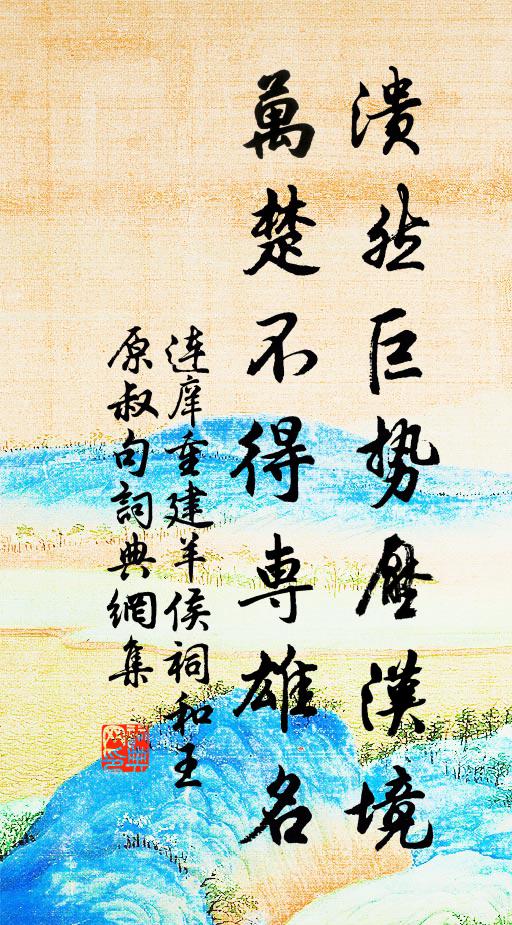 潰然巨势壓漢境
萬楚不得專雄名
连庠重建羊侯祠和王
原叔句詞典網集